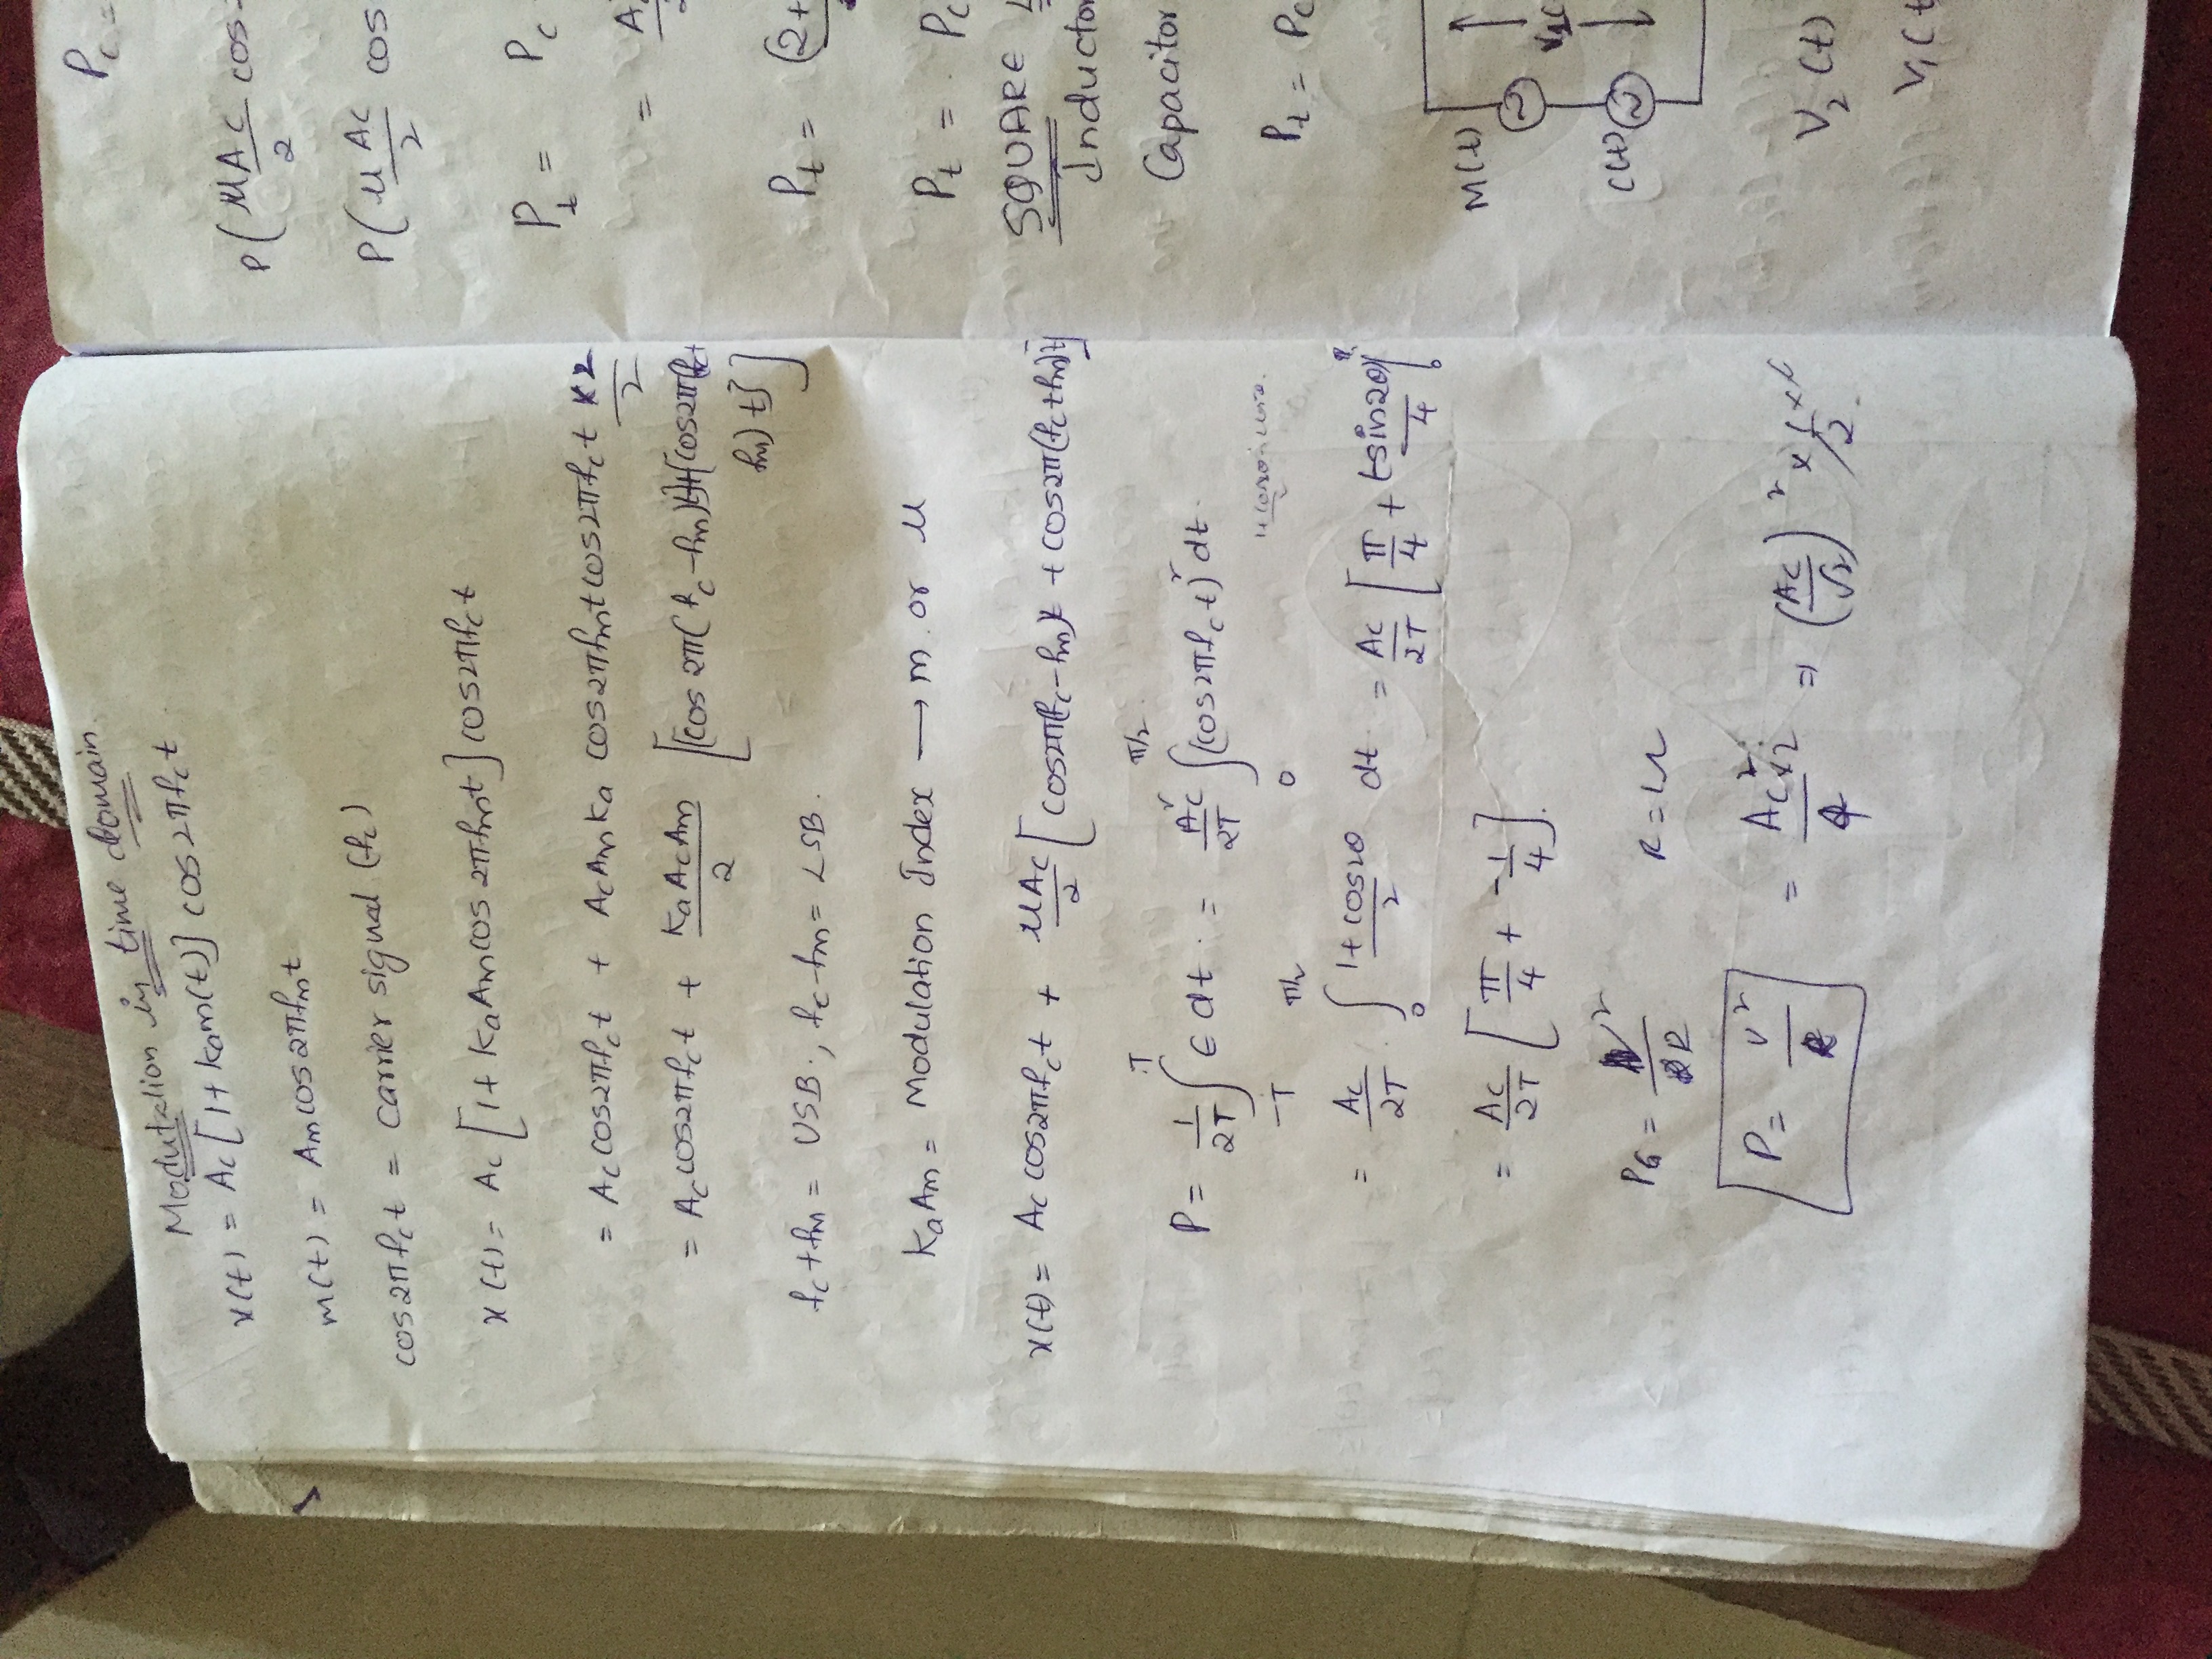 Modutation in time domain
x(t) = Ac [1 + Kam(t)] cos2πfct
m(t) = Am cos2πfmt
cos2πfct = carrier signal (fc)
x(t) = Ac [1 + KaAm cos 2πfmt] cos2πfct
= Ac cos2πfct + AcAmKa cos2πfmt cos2πfct × 2/2
= Ac cos2πfct + KaAcAm/2 [{cos 2π(fc-fm)t}+{cos2π(fc+
fm) t}]
fc+fm = USB., fc-fm = LSB.
KaAm = Modulation Index → m or μ
x(t) = Ac cos2πfct + μAc/2 [cos2π(fc-fm)t + cos2π(fc+fm)t]
P = 1/2T ∫_{-T}^{T} E dt = Ac²/2T ∫_0^{π/2} (cos2πfct)² dt.
= Ac/2T ∫_0^{π/2} 1+cos2θ/2 dt = Ac/2T [π/4 + (-sin2θ)/4]
= Ac/2T [π/4 + -1/4].
PG = V²/R R = 1Ω
P = V²/R = Ac² ⇒ (Ac/√2)² × 1/2
Pc =
P(μAc/2 cos
P(μAc/2 cos
Pt = Pc
=
Pt = (2+
Pt = Pc
SQUARE
Inductor
Capacitor
Pt = Pc
M(t)
C(t)
V2(t)
V1(t